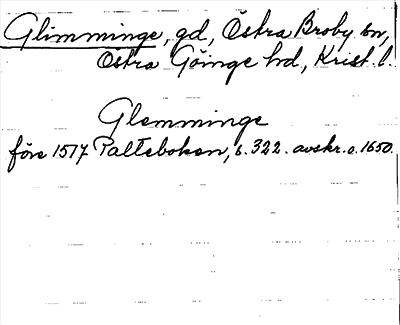 Glimminge, gd, Östra Broby sn,
Östra Göinge hd, Krist. l.
Glemminge
före 1517 Palteboken, s. 322. avskr. c. 1650.